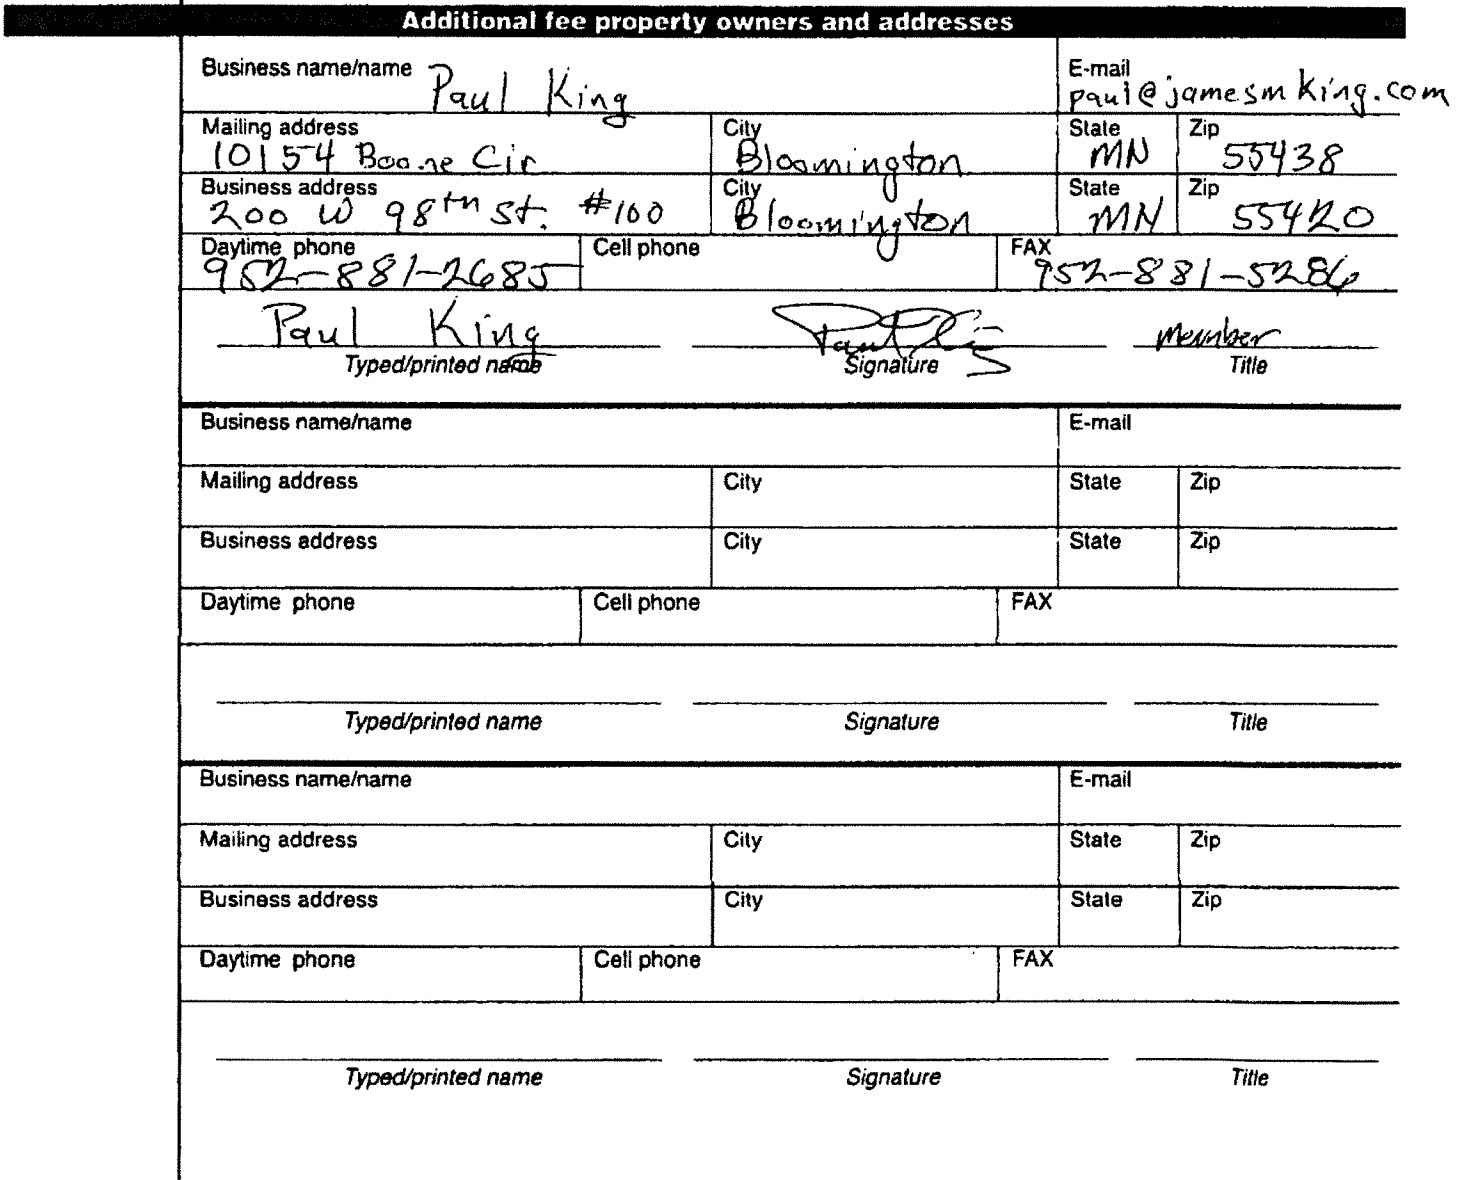 Additional fee property owners and addresses
Business name/name Paul King E-mail paul@jamesmking.com
Mailing address City State Zip
10154 Boone Cir Bloomington MN 55438
Business address City State Zip
200 W 98th St. #100 Bloomington MN 55420
Daytime phone Cell phone FAX
952-881-2685 952-881-5286
Paul King Paul King member
Typed/printed name Signature Title
Business name/name E-mail
Mailing address City State Zip
Business address City State Zip
Daytime phone Cell phone FAX
Typed/printed name Signature Title
Business name/name E-mail
Mailing address City State Zip
Business address City State Zip
Daytime phone Cell phone FAX
Typed/printed name Signature Title